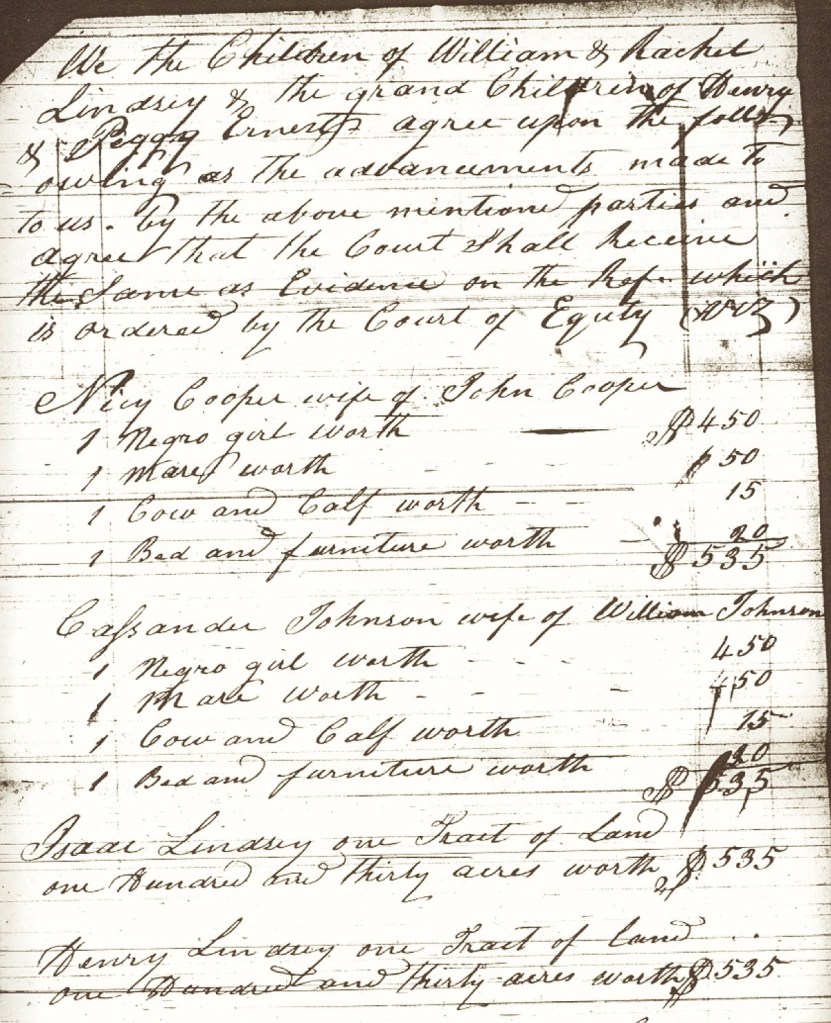 We the Children of William & Rachel
Lindsey & the grand Children of Henry
& Peggy Ernests agree upon the foll-
owing as the advancements made to
to us. by the above mentioned parties and
agree that the Court Shall Receive
the Same as Evidence on the Ref. which
is ordered by the Court of Equity (viz)
Nicy Cooper wife of John Cooper
1 Negro girl worth $450
1 mare worth 50
1 Cow and Calf worth 15
1 Bed and furniture worth 20
$535
Cassander Johnson wife of William Johnson
1 Negro girl worth 450
1 Mare worth 50
1 Cow and Calf worth 15
1 Bed and furniture worth 20
$535
Isaac Lindsey one Tract of Land
one Hundred and thirty acres worth $535
Henry Lindsey one Tract of land
one Hundred and thirty acres worth $535